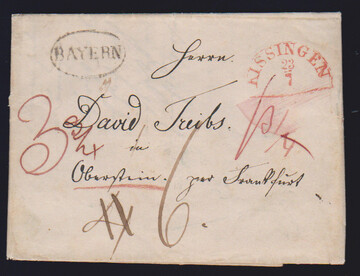 BAYERN
Herrn
KISSINGEN
23
7
David Treibs.
in
Oberstein. per Frankfurt
3 3/4
6